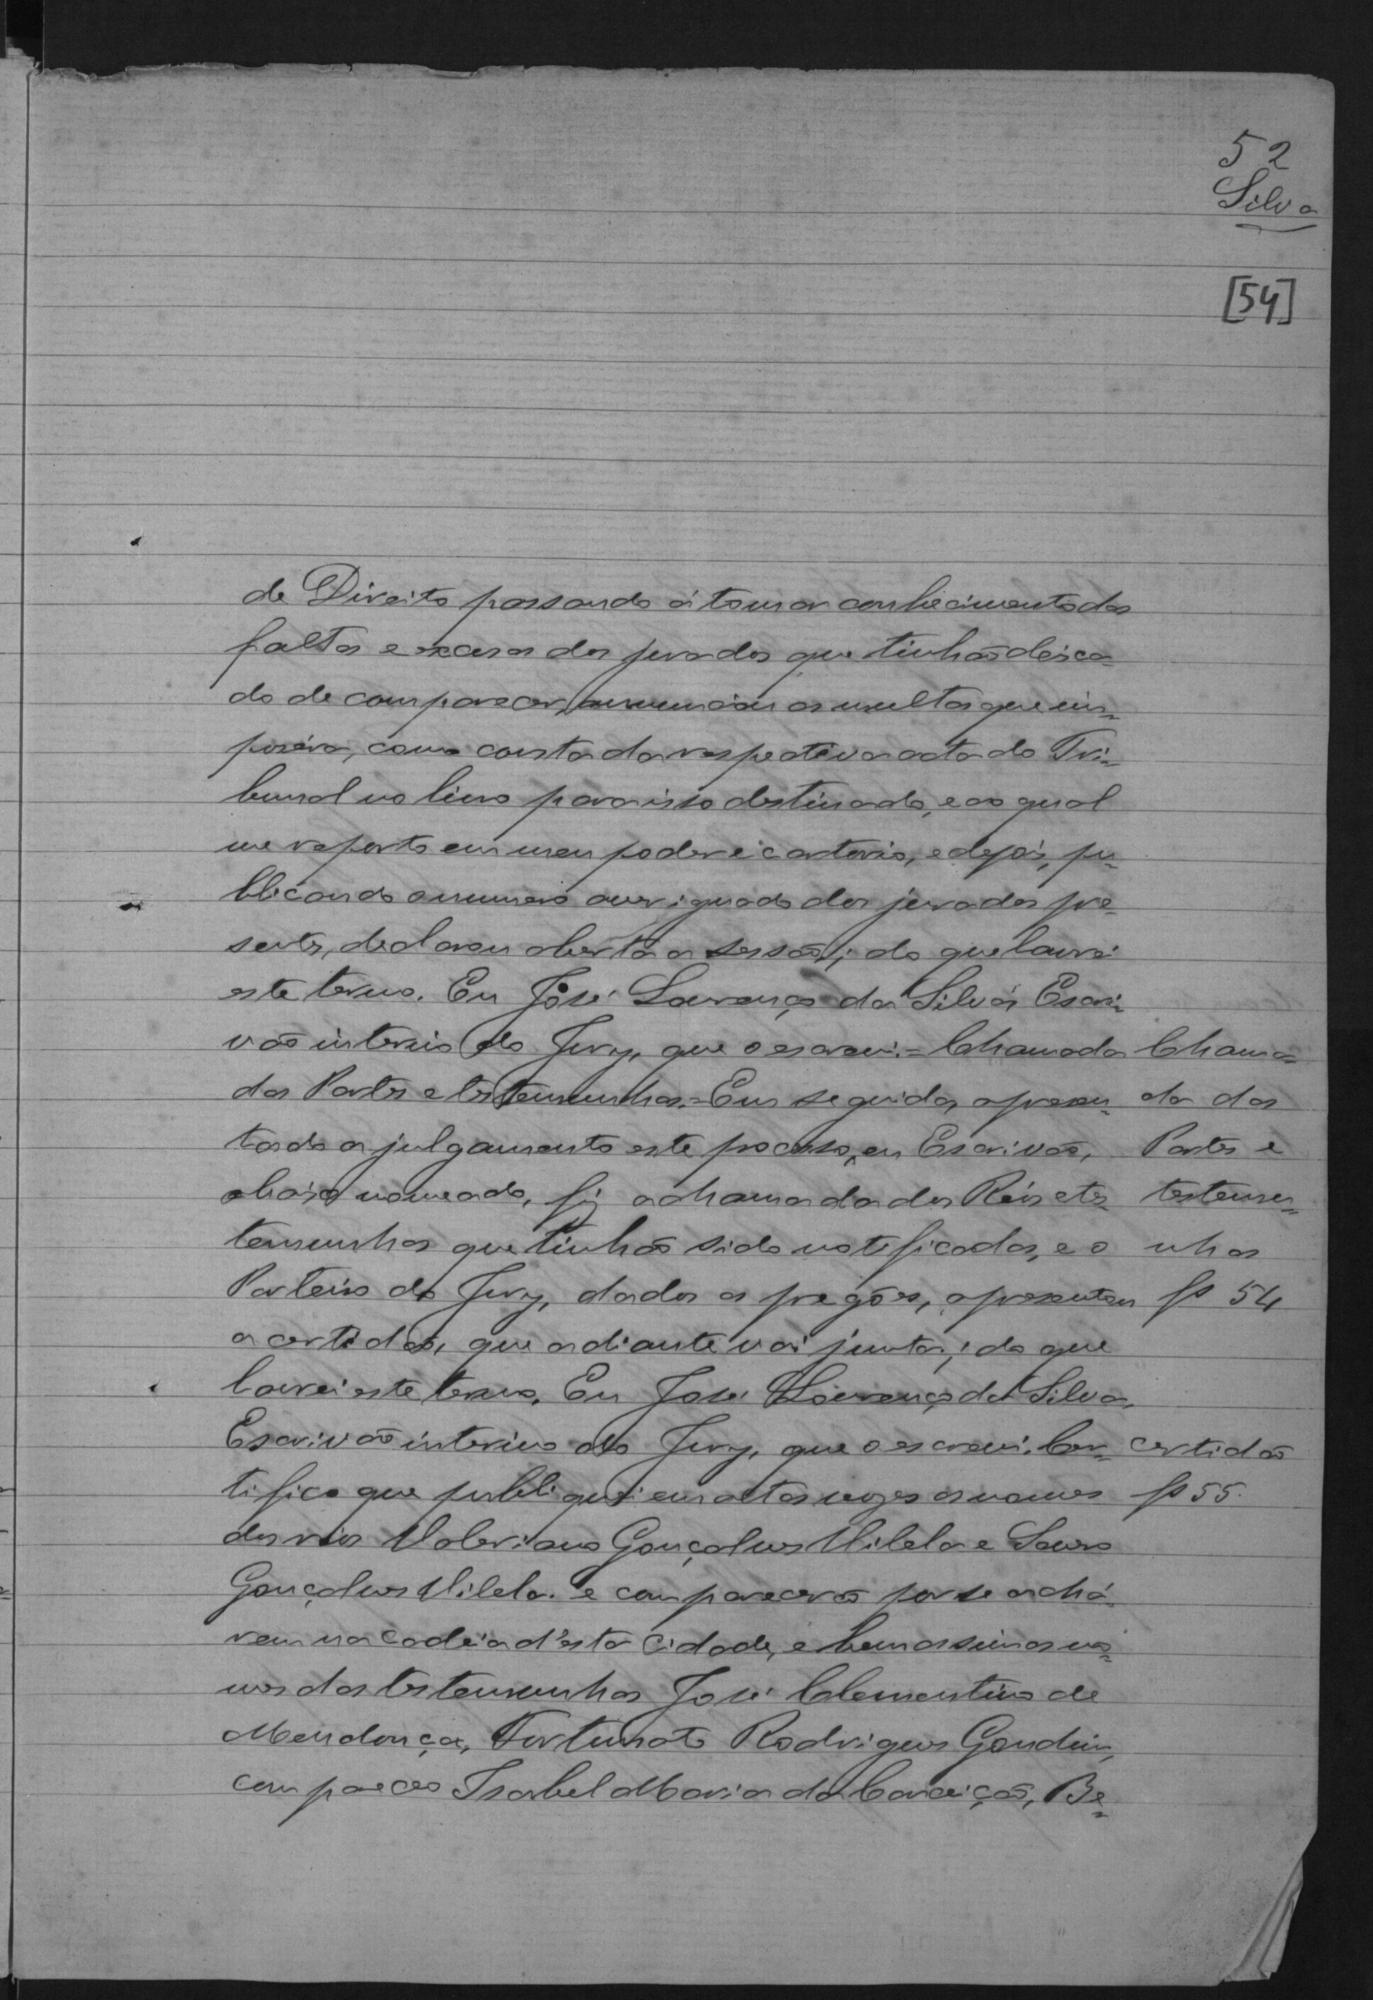 52
Silva
[54]
de Direito passando á tomar conhecimento das
faltas e excusas dos jurados que tinhão deixa-
do de comparecer, annunciou as multas que im-
posera, como consta da respectiva acta do Tri-
bunal no livro para isso destinado, e ao qual
me reporto em meu poder e cartorio, e depois, pu-
blicando o numero averiguado dos jurados pre-
sentes, declarou aberta a sessão; do que lavrei
este termo. Eu José Lourenço da Silva, Escri-
vão interino do Jury, que o escrevi. = Chamada
das Partes e testemunhas. = Em seguida, apresen-
tado a julgamento este processo, eu Escrivão,
abaixo nomeado, fiz a chamada dos Réis e tes-
temunhas que tinhão sido notificadas, e o
Porteiro do Jury, dados os pregões, apresentou
a certidão, que adiante vai junta; do que
lavrei este termo. Eu José Lourenço da Silva,
Escrivão interino do Jury, que o escrevi. Cer-
tifico que publiquei em altas vozes os nomes
dos réos Valeriano Gonçalves Vilela e Lauro
Gonçalves Vilela. e comparecerão por se achá-
rem na cadeia d'esta Cidade, e bem assim os no-
mes das testemunhas José Clementino de
Mendonça, Fortunato Rodrigues Gondim,
compareceo Isabel Maria da Conceição, Be-
Chama-
da das
Partes e
testemu-
nhas
fs 54
certidão
fs 55.